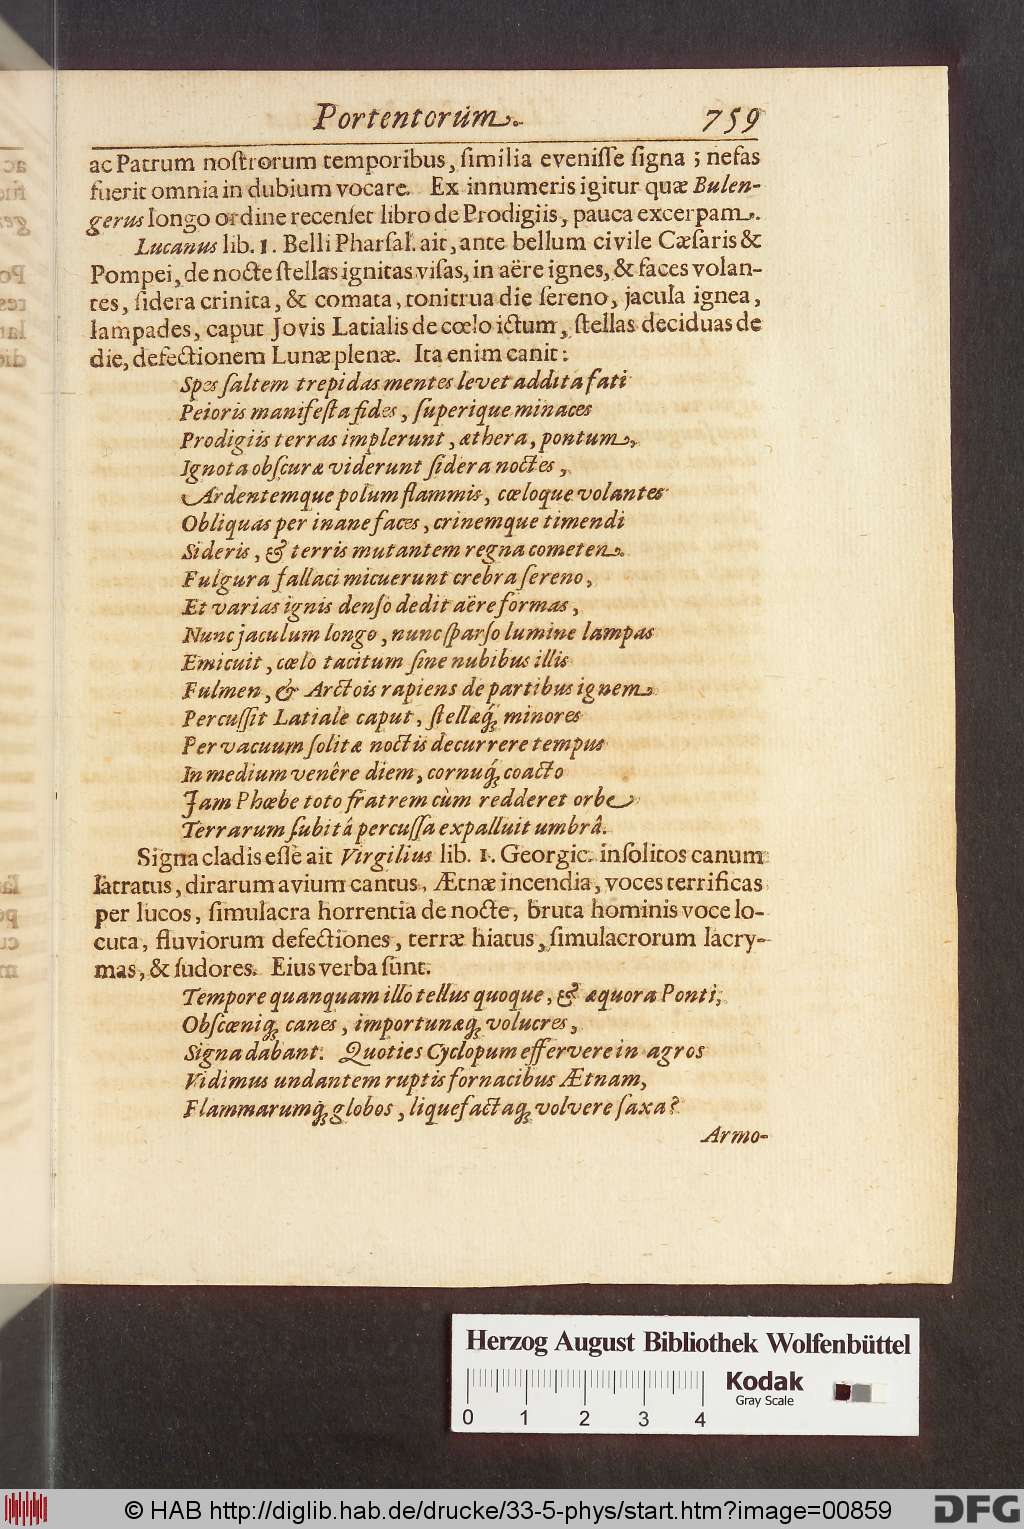 Portentorum. 759
ac Patrum nostrorum temporibus, similia evenisse signa; nefas
fuerit omnia in dubium vocare. Ex innumeris igitur quæ Bulen-
gerus longo ordine recenset libro de Prodigiis, pauca excerpam.
Lucanus lib. 1. Belli Pharsal. ait, ante bellum civile Cæsaris &
Pompei, de nocte stellas ignitas visas, in aëre ignes, & faces volan-
tes, sidera crinita, & comata, tonitrua die sereno, jacula ignea,
lampades, caput Jovis Latialis de cœlo ictum, stellas deciduas de
die, defectionem Lunæ plenæ. Ita enim canit:
Spes saltem trepidas mentes levet addita fati
Peioris manifesta fides, superique minaces
Prodigiis terras implerunt, æthera, pontum,
Ignota obscuræ viderunt sidera noctes,
Ardentemque polum flammis, cœloque volantes
Obliquas per inane faces, crinemque timendi
Sideris, & terris mutantem regna cometen.
Fulgura fallaci micuerunt crebra sereno,
Et varias ignis denso dedit aëre formas,
Nunc jaculum longo, nunc sparso lumine lampas
Emicuit, cœlo tacitum sine nubibus illis
Fulmen, & Arctois rapiens de partibus ignem
Percussit Latiale caput, stellæq́; minores
Per vacuum solitæ noctis decurrere tempus
In medium venêre diem, cornuq́; coacto
Jam Phœbe toto fratrem cùm redderet orbe
Terrarum subitâ percussa expalluit umbrâ.
Signa cladis esse ait Virgilius lib. 1. Georgic. insolitos canum
latratus, dirarum avium cantus, Ætnæ incendia, voces terrificas
per lucos, simulacra horrentia de nocte, bruta hominis voce lo-
cuta, fluviorum defectiones, terræ hiatus, simulacrorum lacry-
mas, & sudores. Eius verba sunt.
Tempore quanquam illo tellus quoque, & æquora Ponti,
Obscœniq; canes, importunæq; volucres,
Signa dabant. Quoties Cyclopum effervere in agros
Vidimus undantem ruptis fornacibus Ætnam,
Flammarumq́; globos, liquefactaq; volvere saxa?
Armo-
Herzog August Bibliothek Wolfenbüttel
Kodak
Gray Scale
0 1 2 3 4
© HAB http://diglib.hab.de/drucke/33-5-phys/start.htm?image=00859
DFG